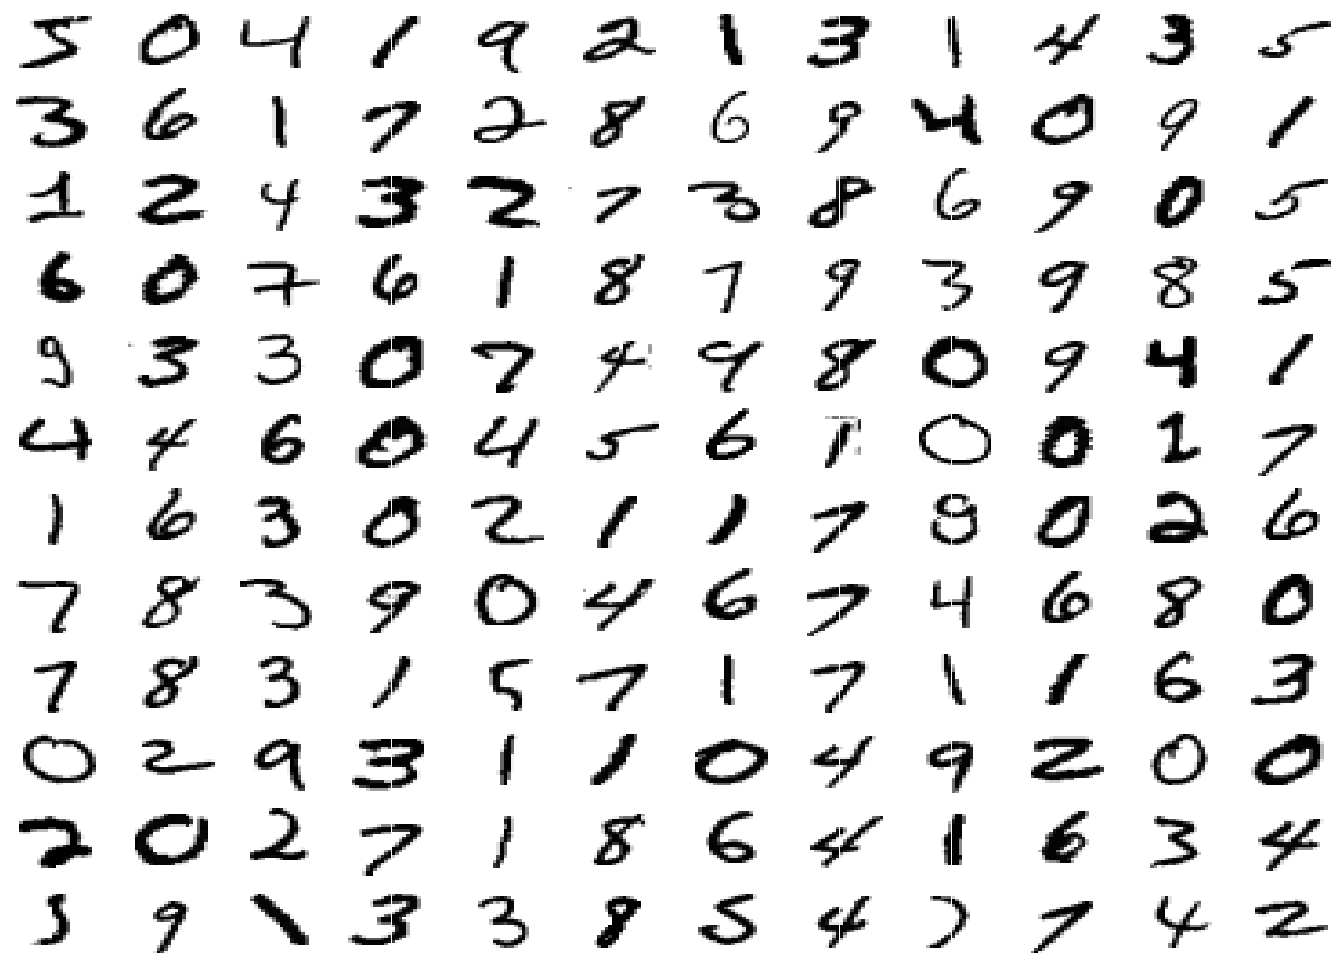 5 0 4 1 9 2 1 3 1 4 3 5
3 6 1 7 2 8 6 9 4 0 9 1
1 2 4 3 2 7 3 8 6 9 0 5
6 0 7 6 1 8 7 9 3 9 8 5
9 3 3 0 7 4 9 8 0 9 4 1
4 4 6 0 4 5 6 1 0 0 1 7
1 6 3 0 2 1 1 7 9 0 2 6
7 8 3 9 0 4 6 7 4 6 8 0
7 8 3 1 5 7 1 7 1 1 6 3
0 2 9 3 1 1 0 4 9 2 0 0
2 0 2 7 1 8 6 4 1 6 3 4
5 9 1 3 3 8 5 4 7 7 4 2